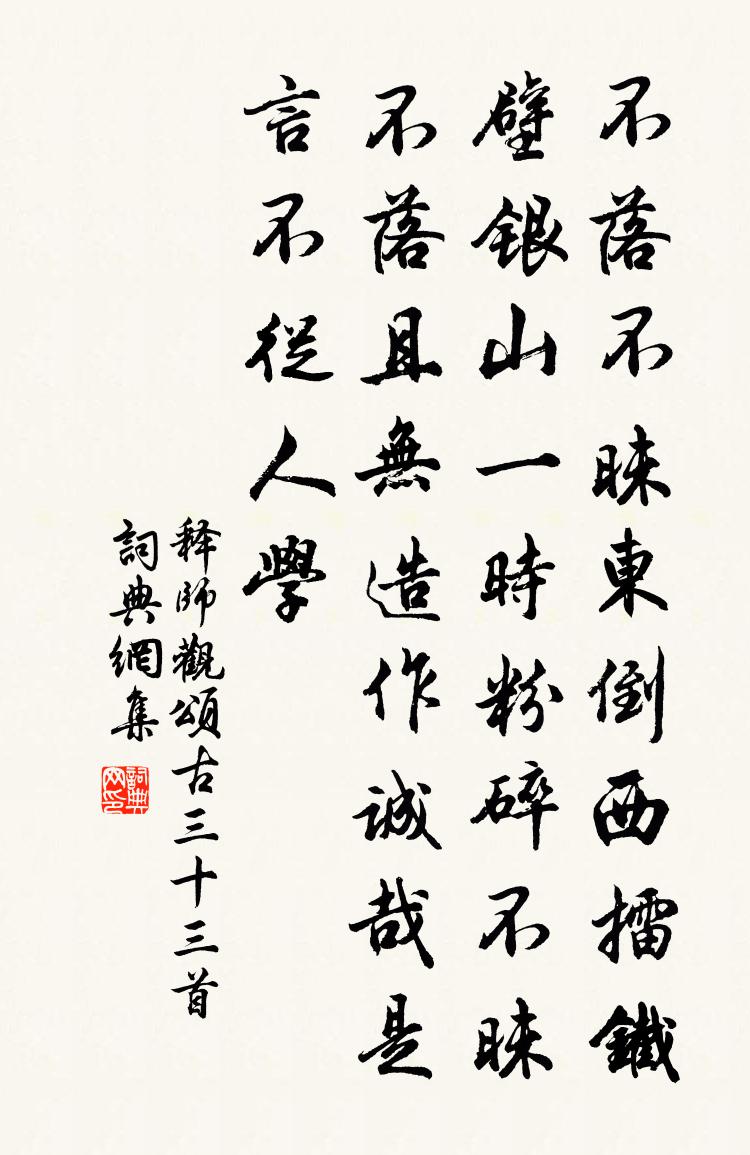 不落不昧東倒西擂鐵
壁銀山一時粉碎不昧
不落且無造作誠哉是
言不從人學
释師觀頌古三十三首
詞典網集
詞典网印